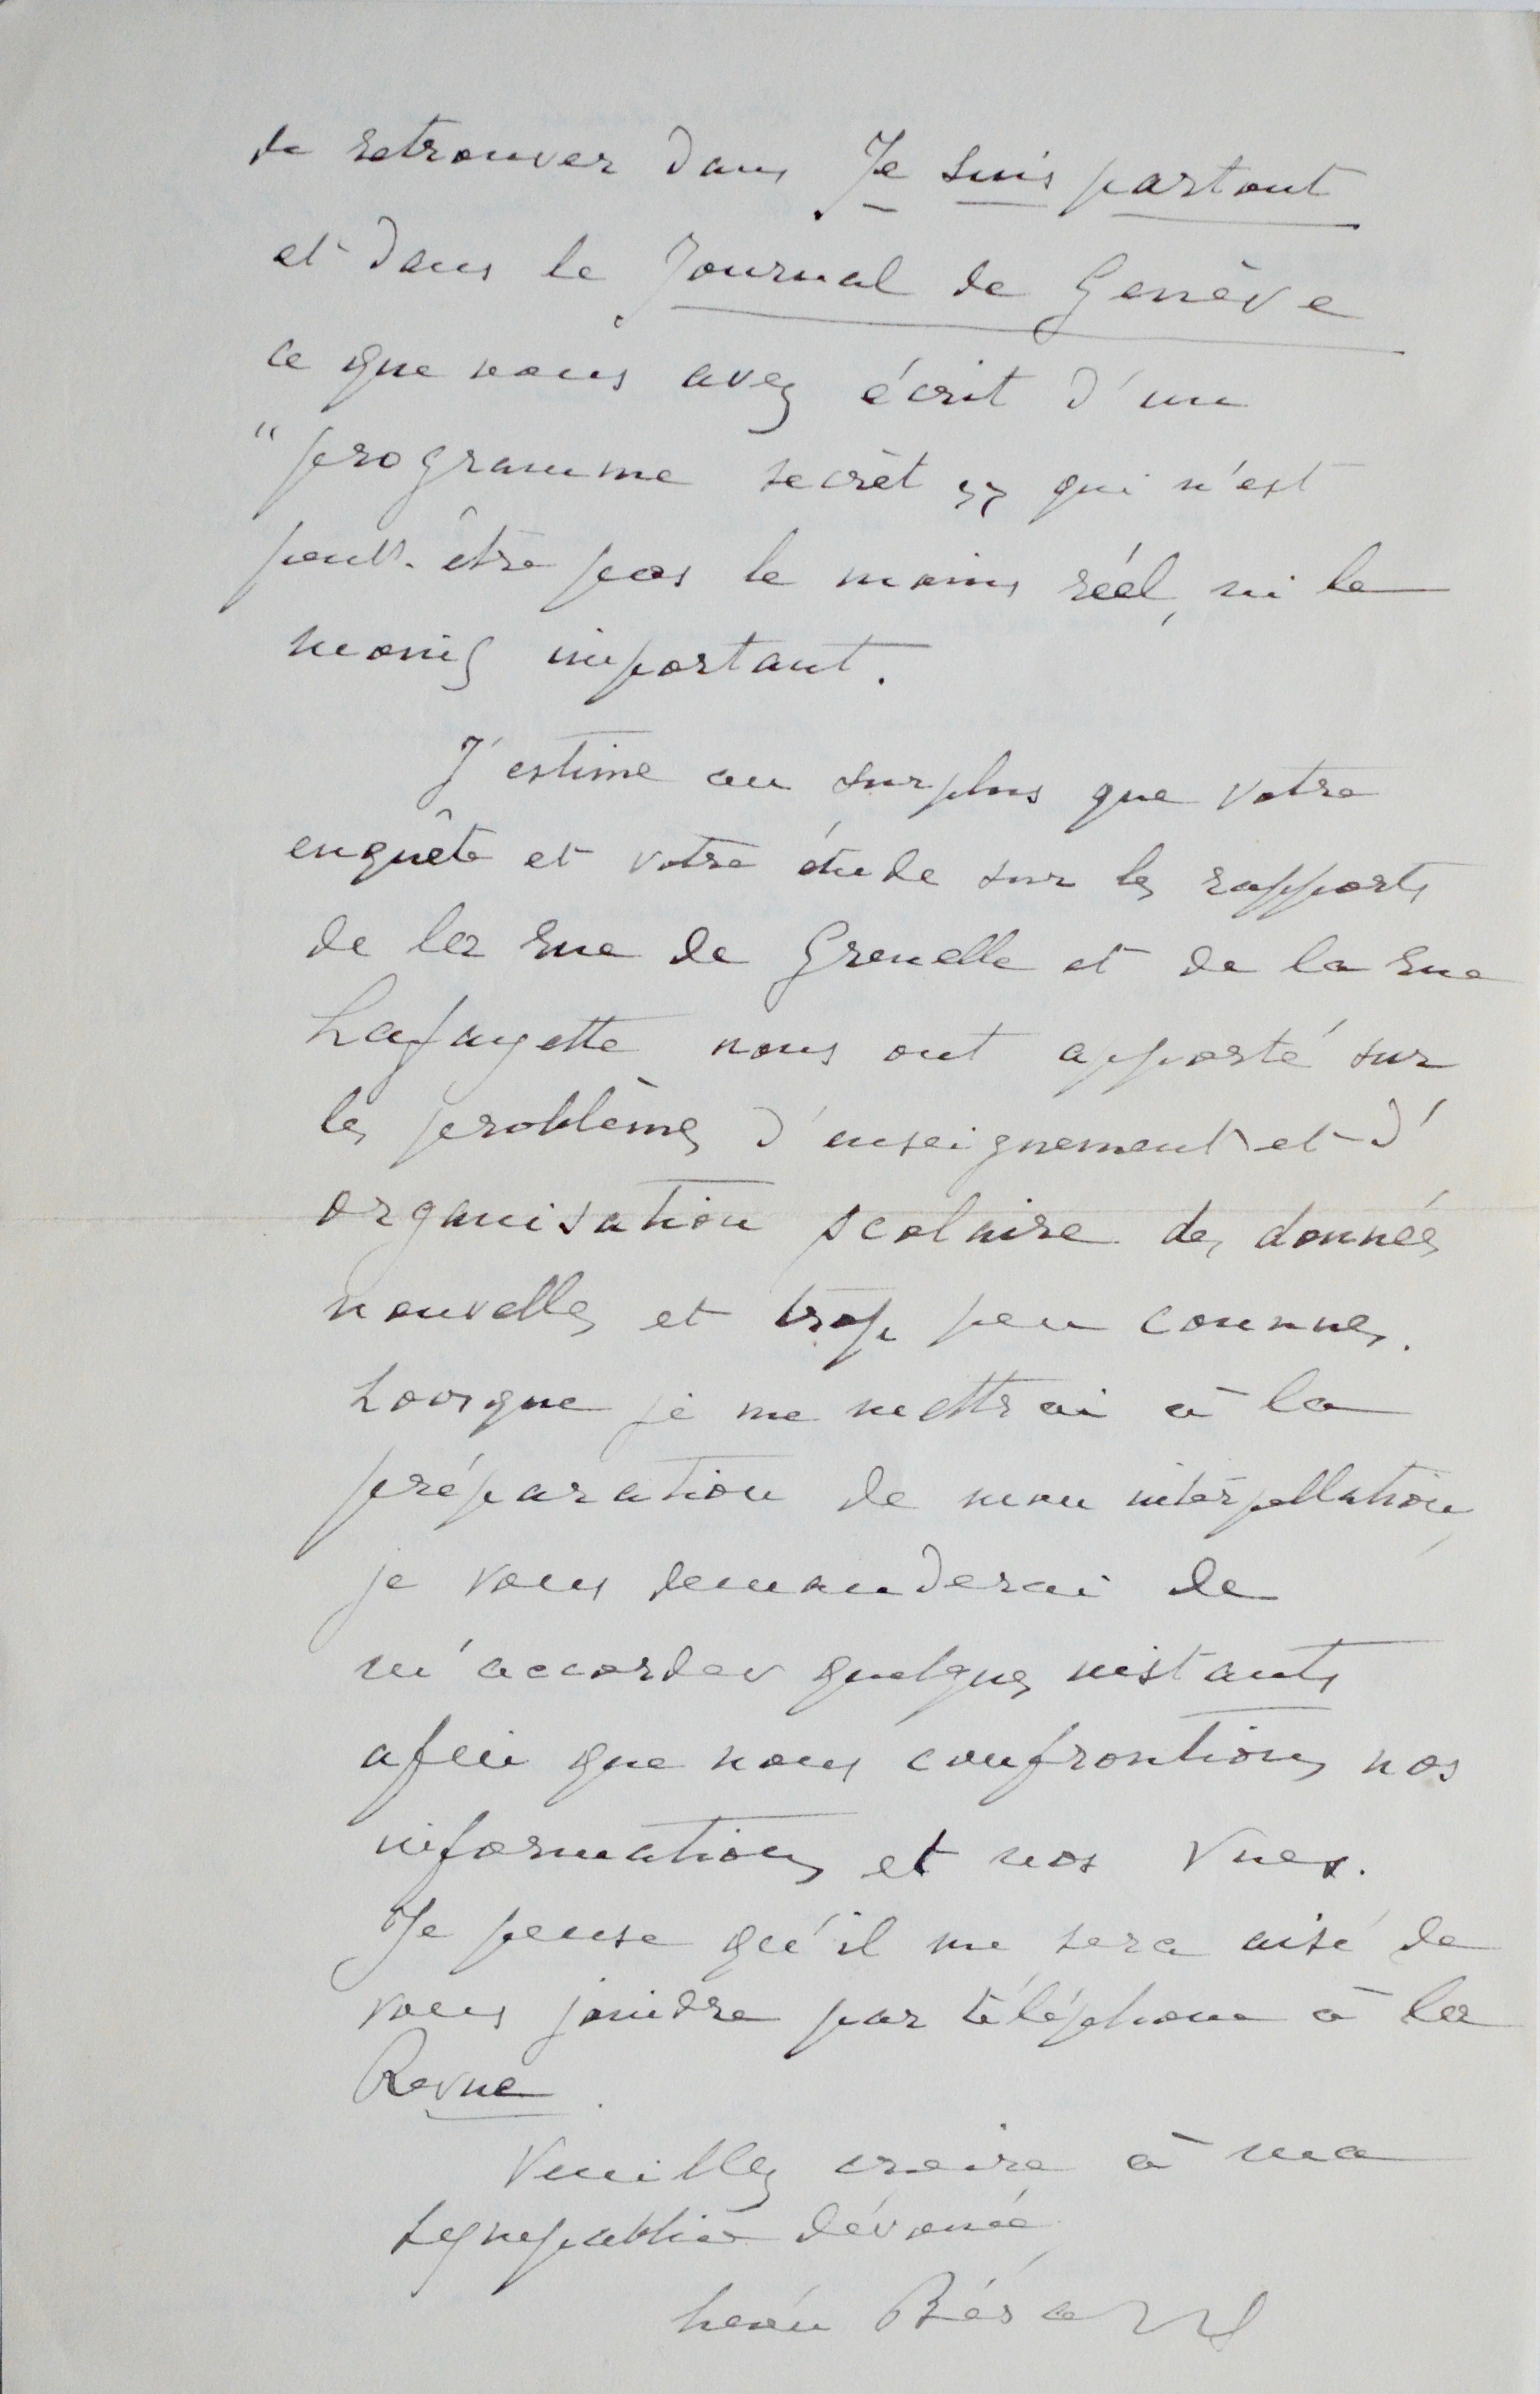 de retrouver dans Je suis partout
et dans le Journal de Genève
ce que vous avez écrit d'un
"programme secret" qui n'est
peut-être pas le moins réel, ni le
moins important.
J'estime au surplus que votre
enquête et votre étude sur les rapports
de la rue de Grenelle et de la rue
Lafayette nous ont apporté sur
les problèmes d'enseignement et d'
organisation scolaire des données
nouvelles et trop peu connues.
Lorsque je me mettrai à la
préparation de mon interpellation,
je vous demanderai de
m'accorder quelques instants
afin que nous confrontions nos
informations et nos vues.
Je pense qu'il me sera aisé de
vous joindre par téléphone à la
Revue.
Veuillez croire à ma
sympathie dévouée
Léon Bérard